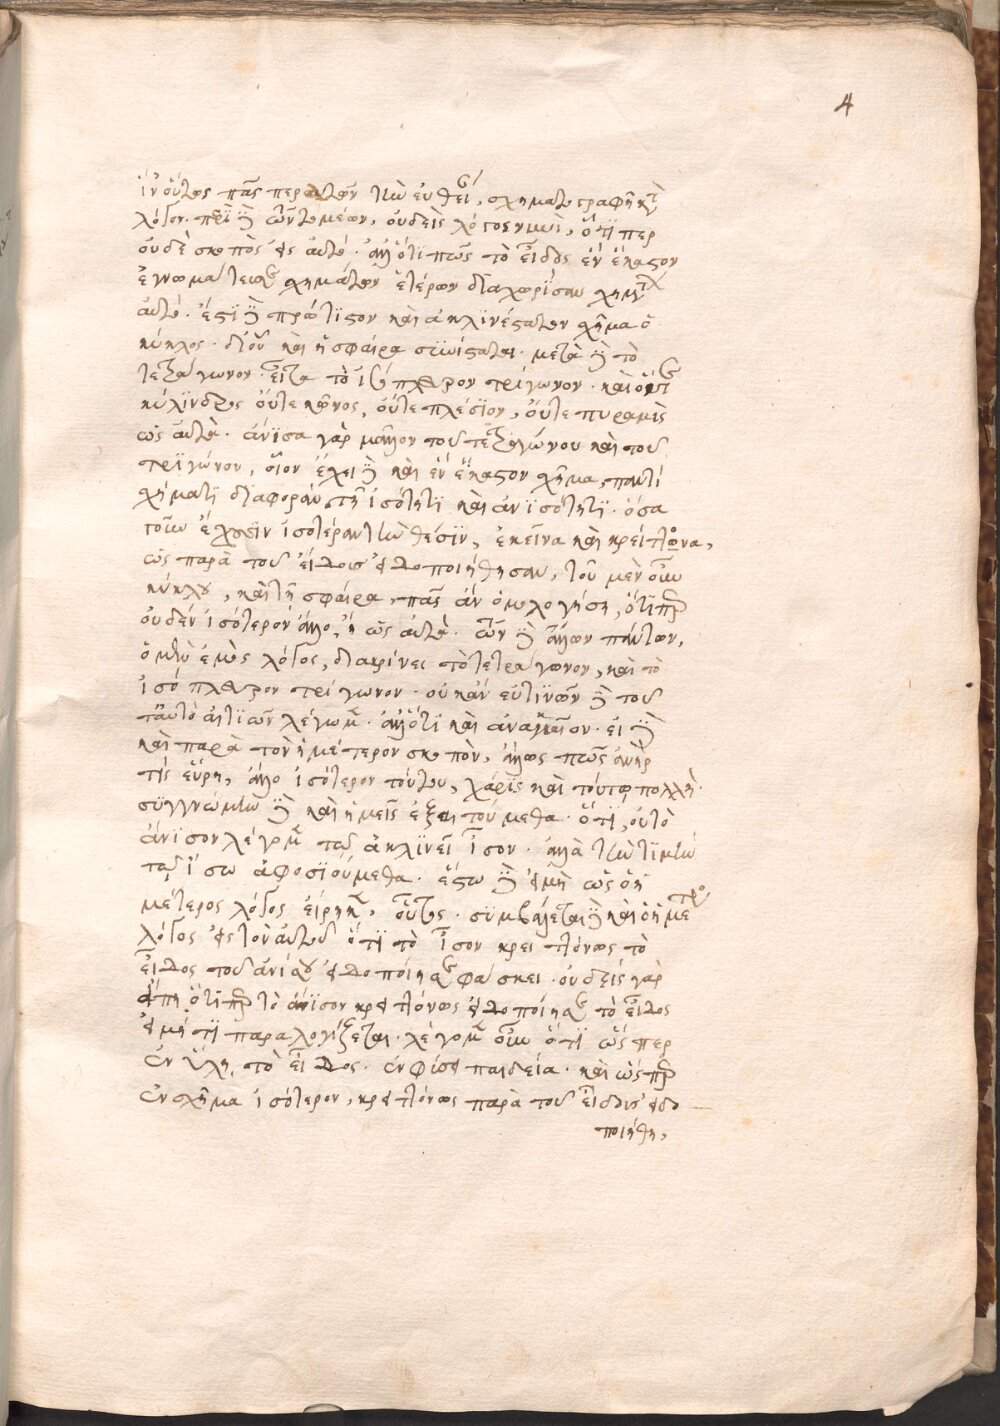 4
ἵν οὕτως πᾶς περ αὐτῶν τὴν εὐθεῖ, σχηματογραφῆ κ
λόγον. περὶ δὲ ὧν τομέων, οὐδεὶς λόγος ἡμῖν, ὅτι περ
οὐδὲ σκοπὸς εἰς αὐτό. ἀλλ' ὅτι πῶς τὸ εἶδος ἐν ἕκαστον
σχημάτων ἑτέρων διαχωρίσαν
αὐτό. ἐστὶ δὲ πρώτιστον καὶ ἀκλινέστατον σχῆμα ὁ
κύκλος. διοῦ καὶ ἡ σφαίρα συνίσταται. μετὰ δὲ τὸ
τετράγωνον. εἶτα τὸ ἰσόπλευρον τρίγωνον. καὶ οὔτε
κύλινδρος οὔτε κῶνος, οὔτε πλέσιον, οὔτε πυραμὶς
ὡς αὐτὰ. ἄνισα γὰρ μᾶλλον τοῦ τετραγώνου καὶ τοῦ
τριγώνου, οἷον ἔχει δὲ καὶ ἐν ἕκαστον σχῆμα παντὶ
σχήματι διαφορὰν τῇ ἰσότητι καὶ ἀνισότητι. ὅσα
τοίνυν ἔχουσιν ἰσοτέραν τὴν θέσιν, ἐκεῖνα καὶ κρείττονα,
ὡς παρὰ τοῦ εἴδους εἰδοποιήθησαν, τοῦ μὲν οὖν
κύκλου, καὶ τῆς σφαίρα, πᾶς ἂν ὁμολογήση, ὅτιπερ
οὐδὲν ἰσότερον ἄλλο, ἢ ὡς αὐτὰ. τῶν δὲ ἄλλων πάντων,
ὁ μὲν ἐμὸς λόγος, διακρίνει τὸ τετράγωνον, καὶ τὸ
ἰσόπλευρον τρίγωνον. οὐκ ἂν εὔτινῶν δὲ τοῦ
ταυτὸ αἰτιῶν λέγωμεν. ἀλλ' ὅτι καὶ ἀναγκαῖον. εἰ δὲ
καὶ παρὰ τὸν ἡμέτερον σκοπὸν, ἄλλως πῶς ἀνὴρ
τίς εὕρη, ἄλλο ἰσότερον τούτου, χάρις καὶ τούτῳ πολλή.
συγγνώμην δὲ καὶ ἡμεῖς ἐξαιτούμεθα. ὅτι, οὐ τὸ
ἄνισον λέγομεν τοῦ ἀκλινεῖ ἴσον. ἀλλὰ τὴν τιμὴν
τοῦ ἴσω ἀφοσιούμεθα. ἔστω δὲ ἐμὴ ὡς ὁ ἡ
μέτερος λόγος εἴρηκεν, οὕτως. συμβάλεται δὲ καὶ ὁ ἡμέτερος
λόγος εἰς τὸν αὐτοῦ ὅτι τὸ ἴσον κρειττόνως τὸ
εἶδος τοῦ ἀνίσου εἰδοποίησα φάσκει. οὐδεὶς γὰρ
εἴπη ὅτιπερ τὸ ἄνισον κρειττόνως εἰδοποίησε τὸ εἶδος
εἰ μή τι παραλογίζεται. λέγομεν οὖν ὅτι ὥσπερ
ἐν ὕλη τὸ εἶδος. ἐν φύσει παιδεία. καὶ ὥσπερ
ἐν σχῆμα ἰσότερον, κρειττόνως παρὰ τοῦ εἴδους εἰδο
ποιήθη,